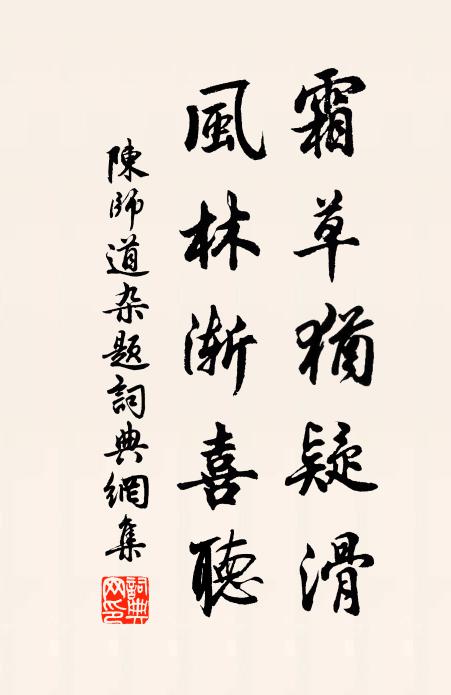 霜草猶疑滑
風林漸喜聽
陳師道杂題詞典網集
詞典網印